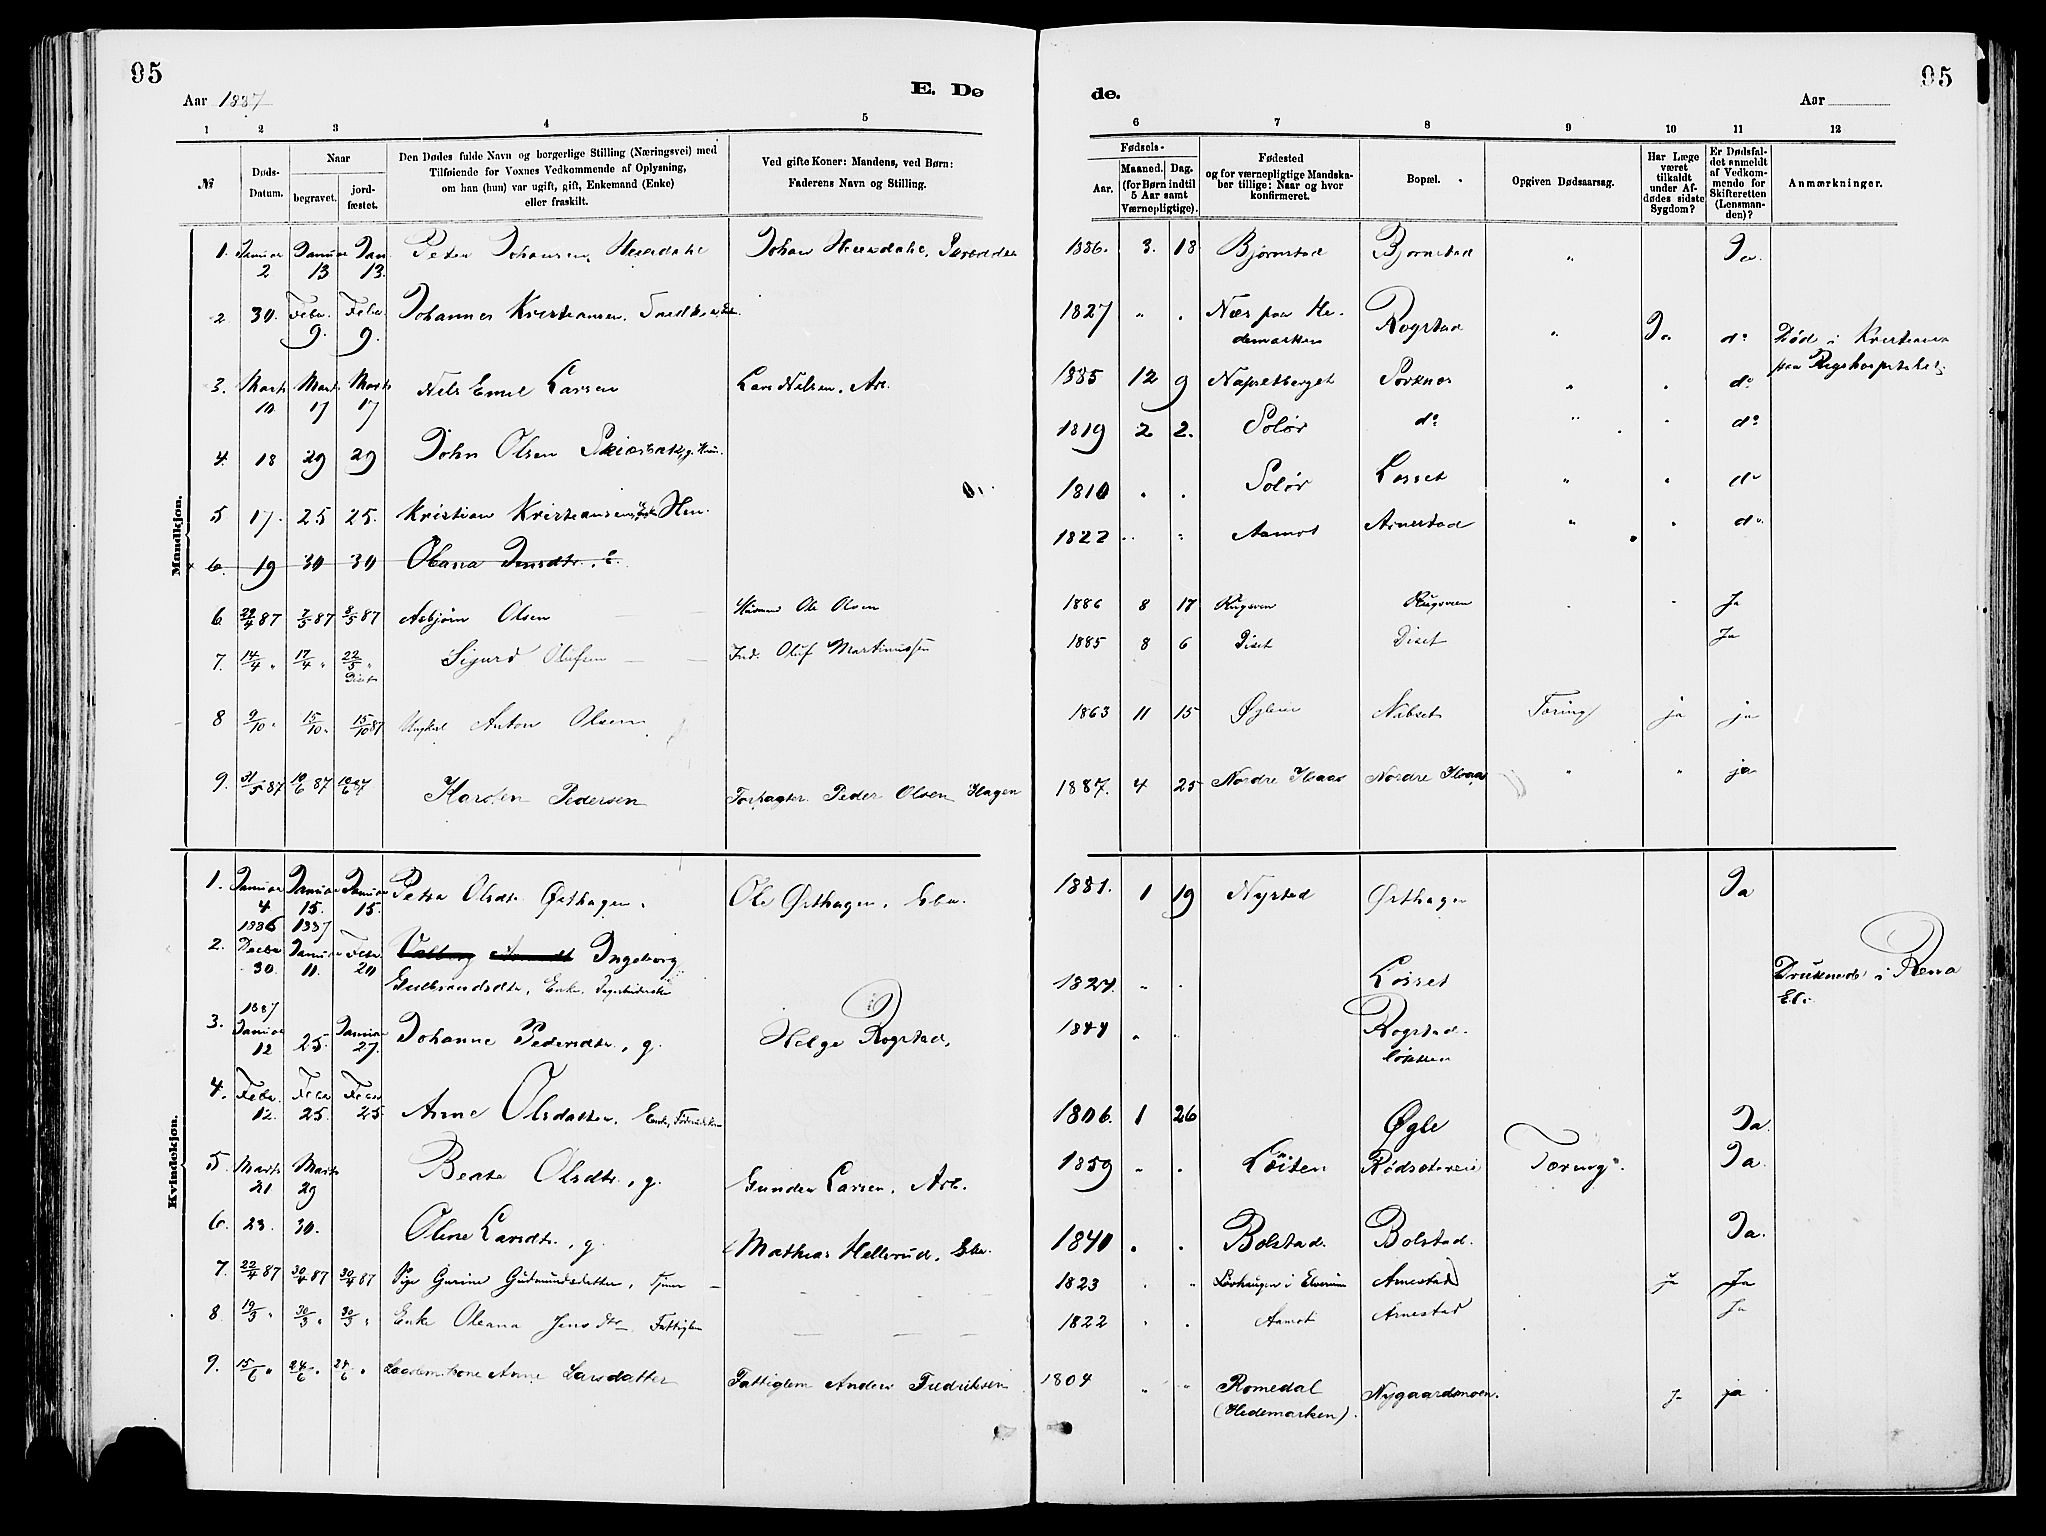 95
Aar 1887
E. Dø
1 2 3 4 5
№
Døds-
Datum.
Naar
begravet.
jord-
fæstet.
Den Dødes fulde Navn og borgerlige Stilling (Næringsvei) med
Tilføiende for Voxnes Vedkommende af Oplysning,
om han (hun) var ugift, gift, Enkemand (Enke)
eller fraskilt.
Ved gifte Koner: Mandens, ved Børn:
Faderens Navn og Stilling.
Mandkjøn.
1. Januar 2 Januar 13 Jan. 13. Peter Johansen Johan
2 30. Febr. 9. Febr. 9. Johannes Kristiansen
3. Marts 10 Marts 17 Marts 17 Nels Emil Larsen Lars Nilsen, Arb.
4. 18 29 29 John Olsen
5 17. 25 25. Kristian Kristiansen
6. 19 30 30 Oliana Jensdtr. E.
6 29/4 87 7/5 87 8/5 87 Asbjørn Olsen Husmand Ole Olsen
7. 14/4 " 17/4 " 22/5 " Diset Sigurd Olufsen Ind. Oluf Martinussen
8 9/10 " 15/10 " 15/10 87 Ungkarl Anton Olsen
9. 31/5 87 10/6 87 10/6 87 Karsten Pedersen Forpagter Peder Olsen Hagen
Kvindekjøn.
1. Januar 4 Januar 15. Januar 15. Petra Olsdtr. Østhagen. Ole Østhagen,
1886 1887
2. Decbr 30. Januar 11. Febr. 20 Ingeborg
Gulbrandsdtr, Enke,
1887
3. Januar 12 25. Januar 27. Johanne Pedersdtr., g. Helge Rogstad,
4. Febr. 12. Febr 25. Febr 25 Anne Olsdatter, Enke,
5. Marts 21 Marts 29 Beate Olsdtr., g. Gunder Larsen, Arb.
6. 23. 30. Oline Larsdtr., g. Mathias Hellerud,
7. 22/4 87 30/4 87 30/4 87 Pige Gurine Gudmundsdatter,
8 19/3 " 30/3 " 30/3 " Enke Oleana Jensdtr Fattiglem
9. 15/6 " 24/6 " 24/6 " Anne Larsdatter Fattiglem Anders Fredriksen
95
de.
Aar
6 7 8 9 10 11 12
Fødsels-
Aar.
Maaned. Dag.
(for Børn indtil
5 Aar samt
Værnepligtige).
Fødested
og for værnepligtige Mandska-
ber tillige: Naar og hvor
konfirmeret.
Bopæl.
Opgiven Dødsaarsag.
Har Læge
været
tilkaldt
under Af-
dødes sidste
Sygdom?
Er Dødsfal-
det anmeldt
af Vedkom-
mende for
Skifteretten
(Lensman-
den)?
Anmærkninger.
1886. 3. 18 Bjørnstad Bjørnstad " Ja
1827 " . Næs paa He-
demarken Rogstad " Ja do Død i Kristiania
paa Rigshospitalet
1885 12 9 Næpsetberget Sorknes " . do
1819 2 2. Solør do " . do
1810 . . Solør Løsset " . do
1822 . " Aamot Arnestad " . do
1886 8 17 Rugsveen Rugsveen . . Ja
1885 8 6 Diset Diset Ja
1863 11 15 Øglein Nabset Tæring ja ja
1887. 4 25 Nordre Haas Nordre Haas " " ja
1881. 1 19 Nystad Østhagen Ja
1827. " . Løsset Druknede i Rena
Elv
1844 " . Rogstad-
løkken
1806. 1 26 Øgle Ja.
1859 " . Løiten Rødsætereie Tæring. Ja.
1840 . . Bolstad. Bolstad. Ja.
1823 . " Løvhaugen i Elverum Arnestad ja Ja
1822 " . Aamot Arnestad Ja
1804 " " Romedal
(Hedemarken). Nygaardsmoen. Ja ja